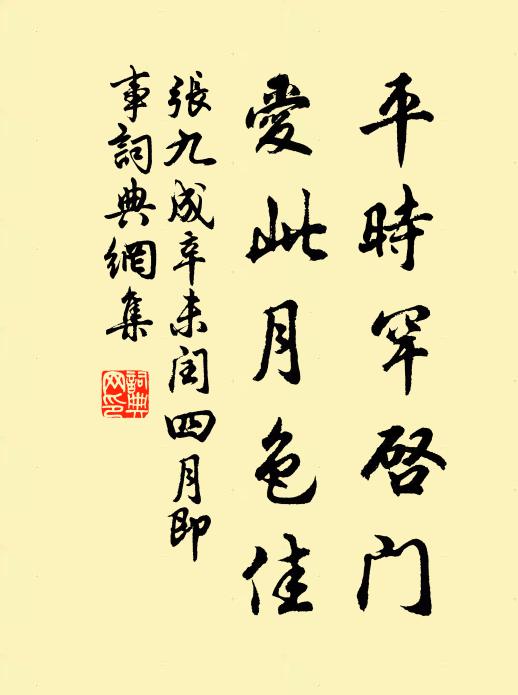 平時罕啓门
愛此月色佳
張九成辛未閏四月即
事詞典網集
詞典网印